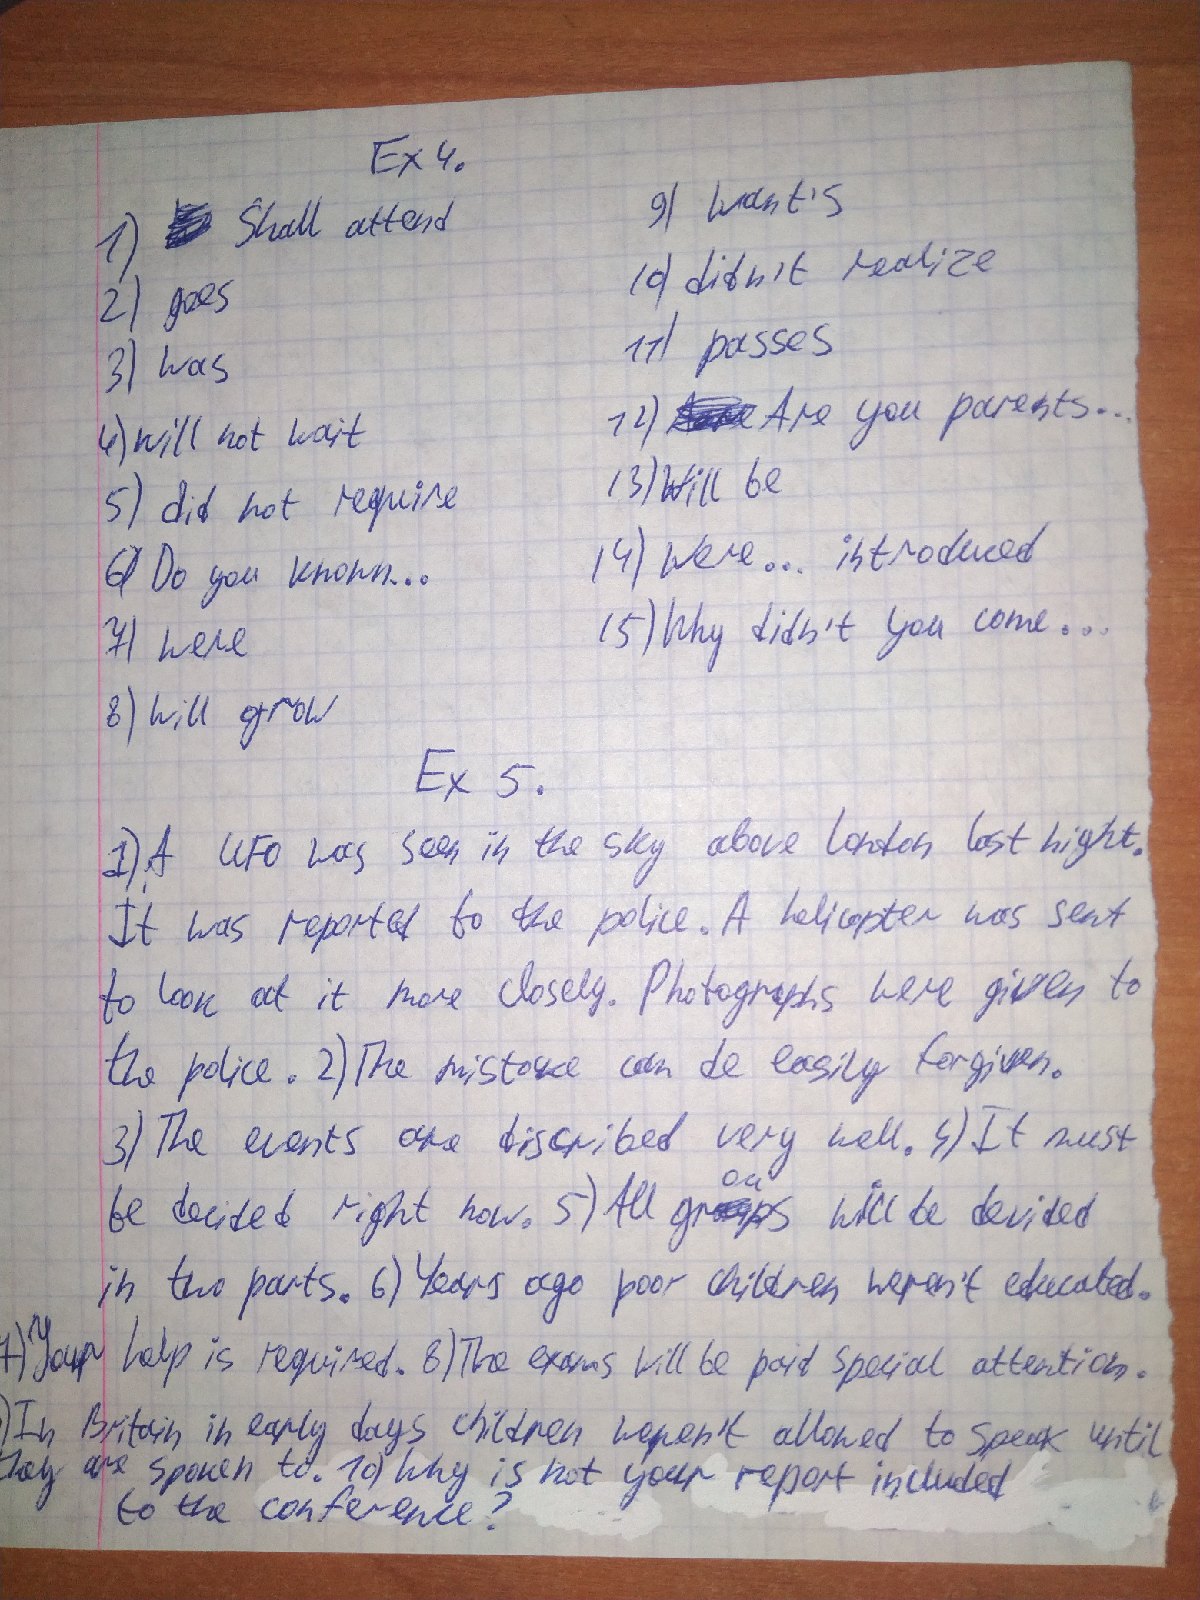 Ex 4.
1) Shall attend
2) goes
3) was
4) will not wait
5) did not require
6) Do you known...
7) were
8) will grow
9) want's
10) didn't realize
11) passes
12) Are you parents...
13) Will be
14) Were... introduced
15) Why didn't you come...
Ex 5.
1) A UFO was seen in the sky above London last night.
It was reported to the police. A helicopter was sent
to look at it more closely. Photographs were given to
the police. 2) The mistake can be easily forgiven.
3) The events are discribed very well. 4) It must
be decided right now. 5) All groups will be devided
in two parts. 6) Years ago poor children weren't educated.
7) Your help is required. 8) The exams will be paid special attention.
) In Britain in early days children weren't allowed to speak until
they are spoken to. 10) Why is not your report included
to the conference?